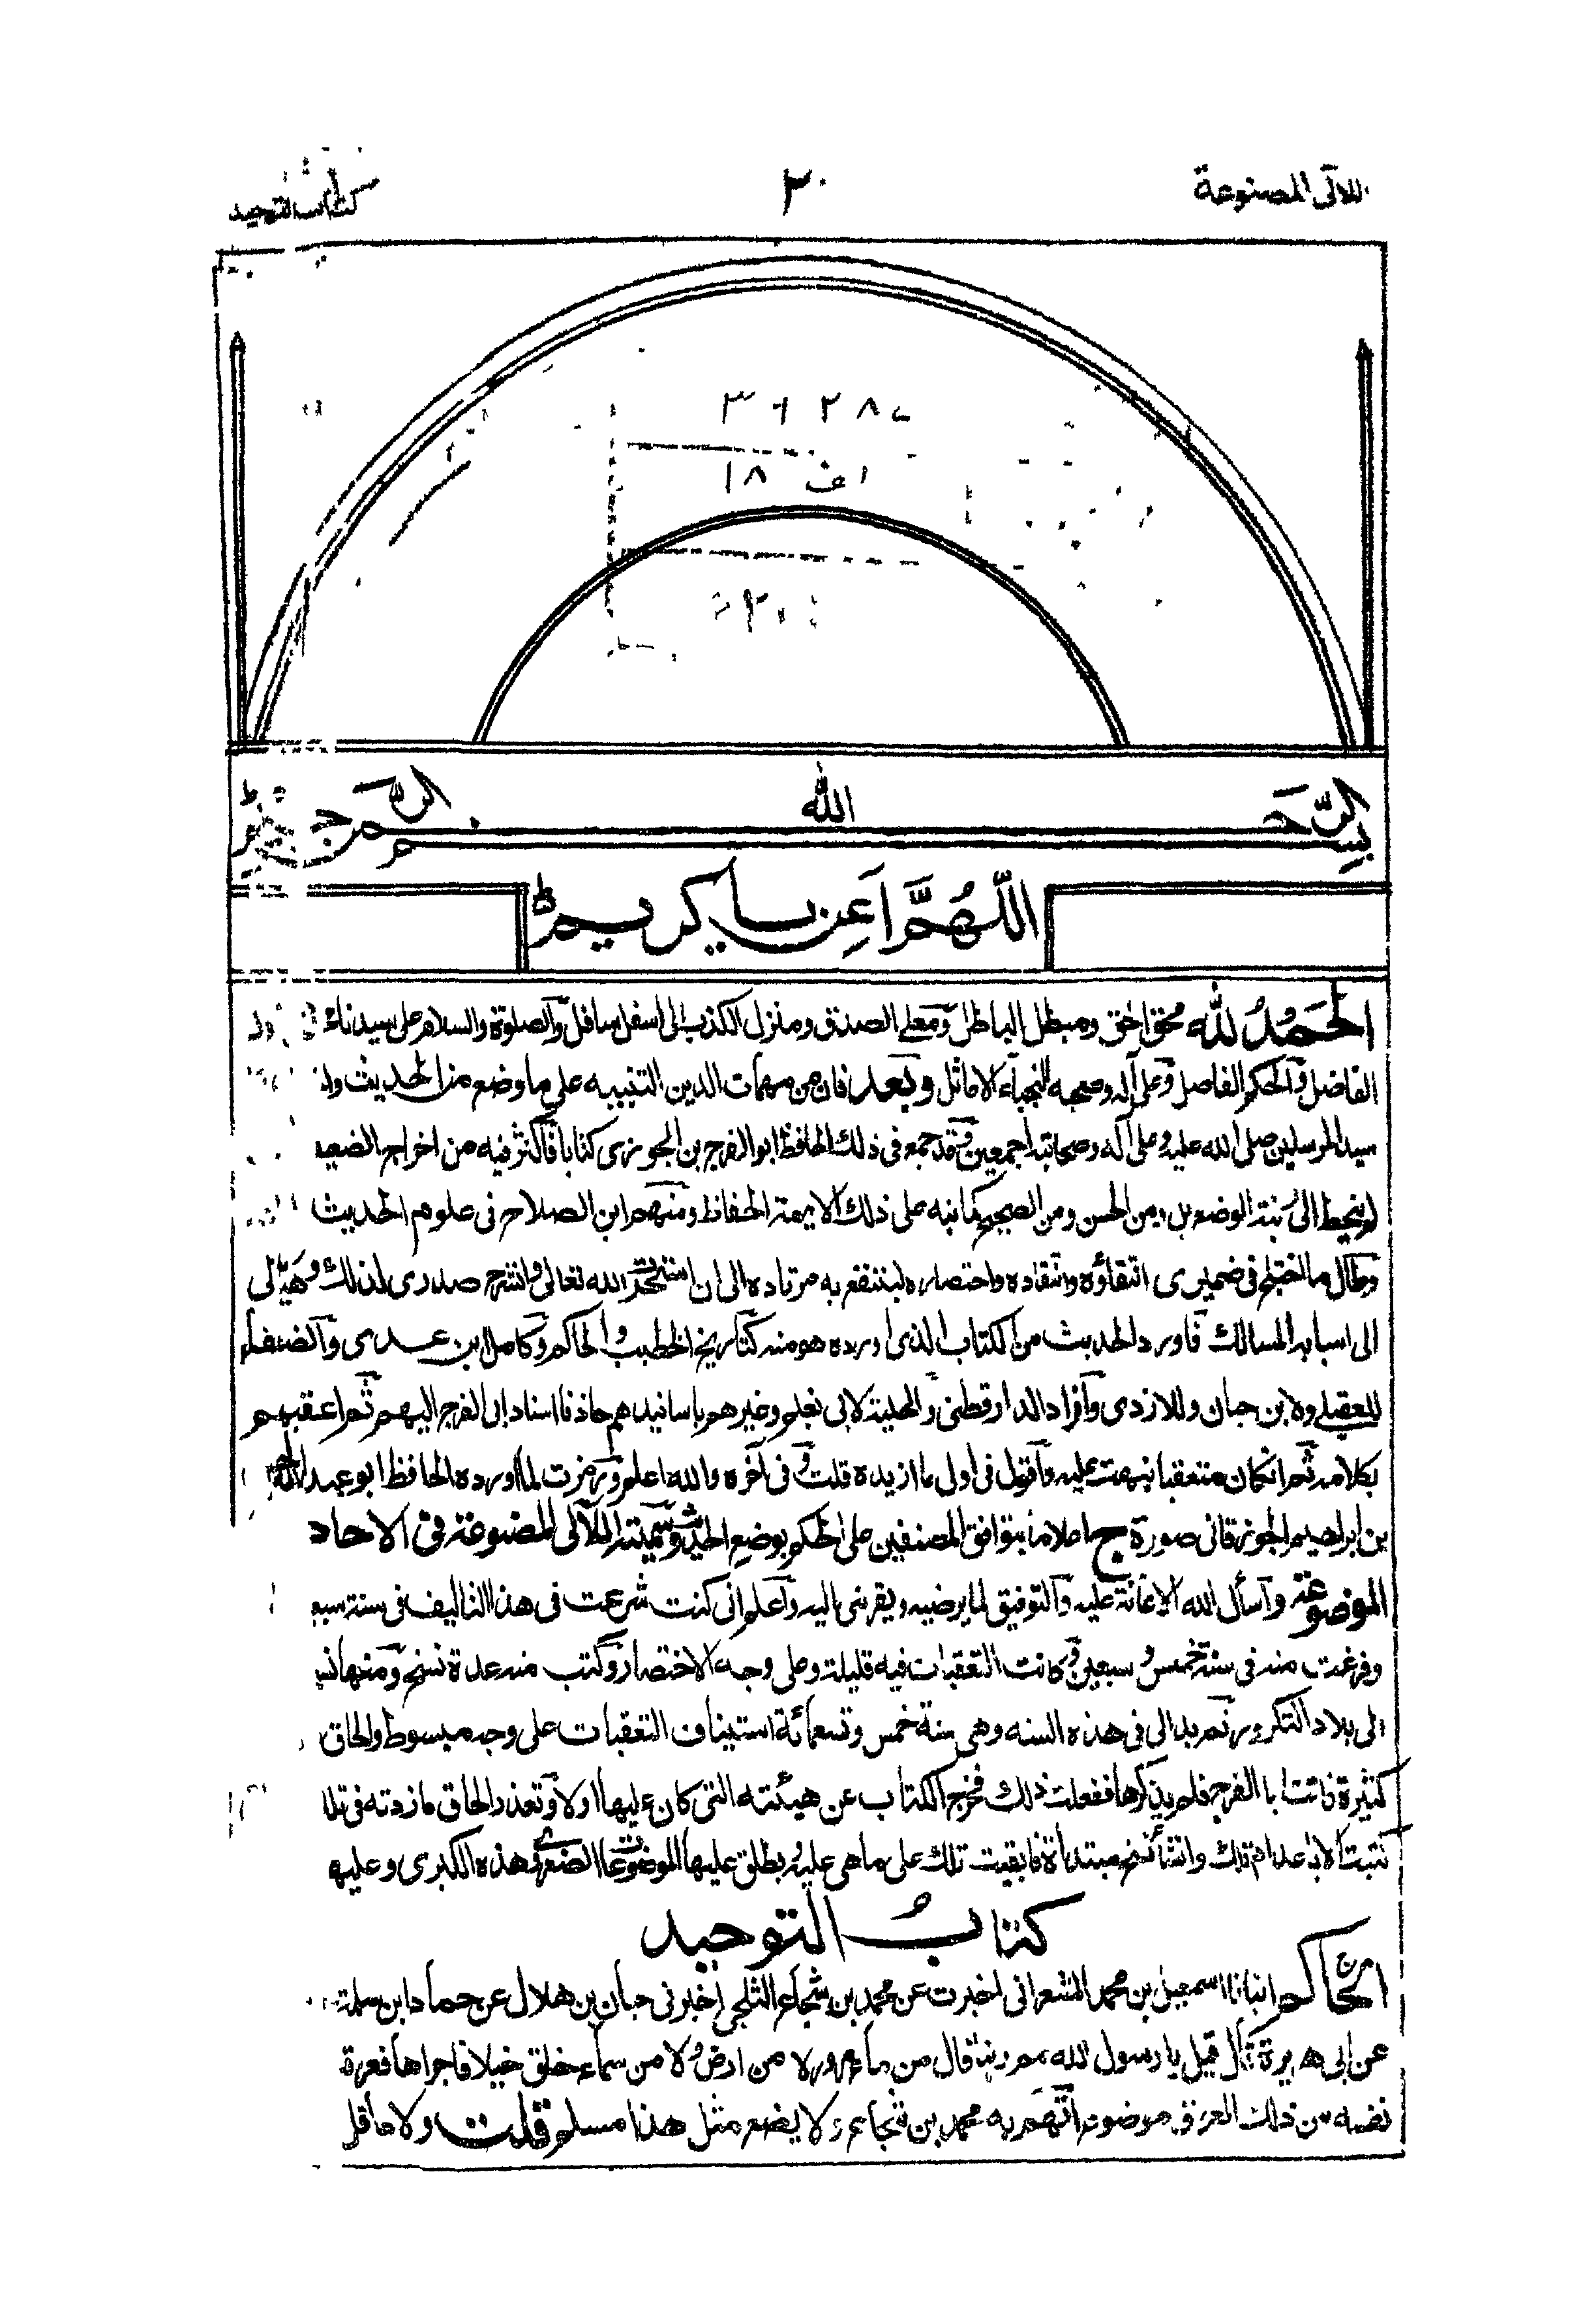 اللآلى المصنوعة
٣٠
كتاب التوحيد
٣٦٢٨
١٨
بسم الله الرحمن الرحيم
اللهم اعن يا كريم
الحمد لله محق الحق ومبطل الباطل ومعلى الصدق ومنزل الكذب الى اسفل سافل والصلوة والسلام على سيدنا
الفاضل والحكم الفاصل وعلى آله وصحبه النجباء الاماثل وبعد فان من مهمات الدين التنبيه على ما وضع من الحديث
سيد المرسلين صلى الله عليه وعلى آله وصحابته اجمعين وقد جمع فى ذلك الحافظ ابو الفرج بن الجوزى كتابا فاكثر فيه من اخراج
لم ينحط الى رتبة الوضع بل ومن الحسن ومن الصحيح كما نبه على ذلك الايمة الحفاظ ومنهم ابن الصلاح فى علوم الحديث
وطال ما اختلج فى ضميرى انتقاؤه وانتقاده واختصاره لينتفع به مرتاده الى ان استخرت الله تعالى وانشرح صدرى لذلك وهيأ لى
الى اسبابه المسالك فاورد الحديث من الكتاب الذى اورده هو منه كتاريخ الخطيب والحاكم وكامل ابن عدى والضعفاء
للعقيلى ولابن حبان وللازدى وافراد الدارقطنى والحلية لابى نعيم وغيرهم باسانيدهم حاذفا اسناد ابى الفرج اليهم ثم اعقبهم
بكلامه ثم ان كان متعقبا نبهت عليه واقول فى اول ما ازيده قلت وفى آخره والله اعلم ورمزت لما اورده الحافظ ابو عبد الله
بن ابراهيم الجوزقانى صورة ج اعلاما بتوافق المصنفين على الحكم بوضع الحديث وسميته اللآلى المصنوعة فى الاحاد
الموضوعة وآسأل الله الاعانة عليه والتوفيق لما يرضيه ويقربنى اليه واعلم انى كنت شرعت فى هذا التاليف فى سنة
وفرغت منه فى سنة خمس وسبعين وكانت التعقبات فيه قليلة وعلى وجه الاختصار وكتب منه عدة نسخ ومنها
الى بلاد التكرور ثم بدا لى فى هذه السنه وهى سنة خمس وتسعمائة استيناف التعقبات على وجه مبسوط والحاق
كثيرة فاتت ابا الفرج فلم يذكرها ففعلت ذلك فخرج الكتاب عن هيئته التى كان عليها اولا وتعذر الحاق ما زدته فى
كتبت الا باعدام تلك وانشاء نسخ مبتدأة فابقيت تلك على ما هى عليه ويطلق عليها الموضوعات الصغرى وهذه الكبرى وعليها
كتاب التوحيد
الحاكم انبانا اسمعيل بن محمد الشعرانى اخبرت عن محمد بن شجاع الثلجى اخبرنى حبان بن هلال عن حماد ابن سلمة
عن ابى هريرة قال قيل يا رسول الله مم ربنا قال من ماء مرور لا من ارض ولا من سماء خلق خيلا فاجراها فعرقت
نفسه من ذلك العرق موضوع اتهم به محمد بن شجاع ولا يضع مثل هذا مسلم قلت ولا عاقل